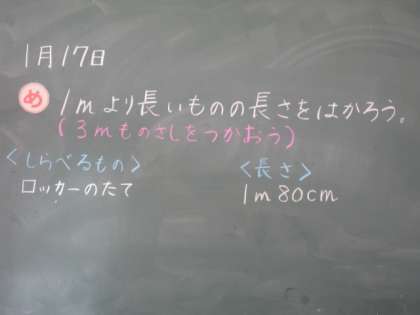 1月17日
め 1mより長いものの長さをはかろう。
(3mものさしをつかおう)
<しらべるもの> <長さ>
ロッカーのたて 1m80cm